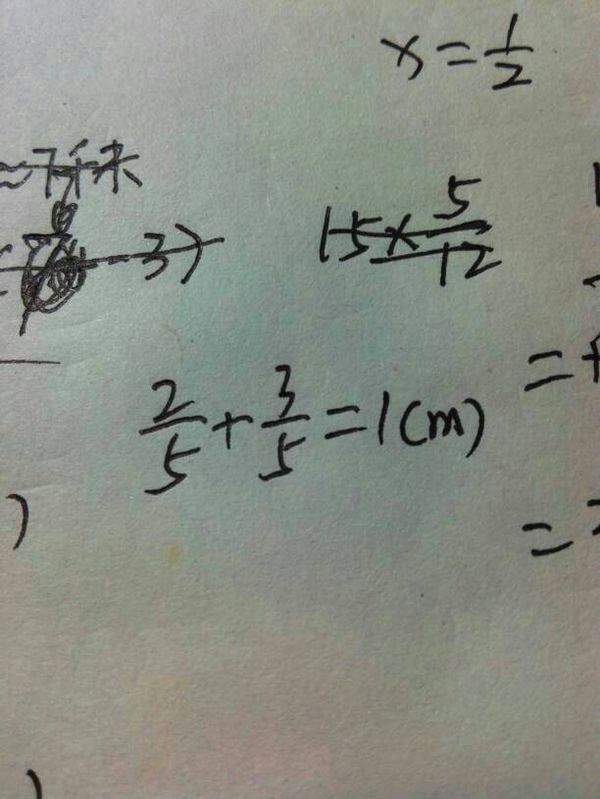 x=1/2
≈7千米
-3)
15×5/12
2/5+3/5=1(m)
=
)
=
)